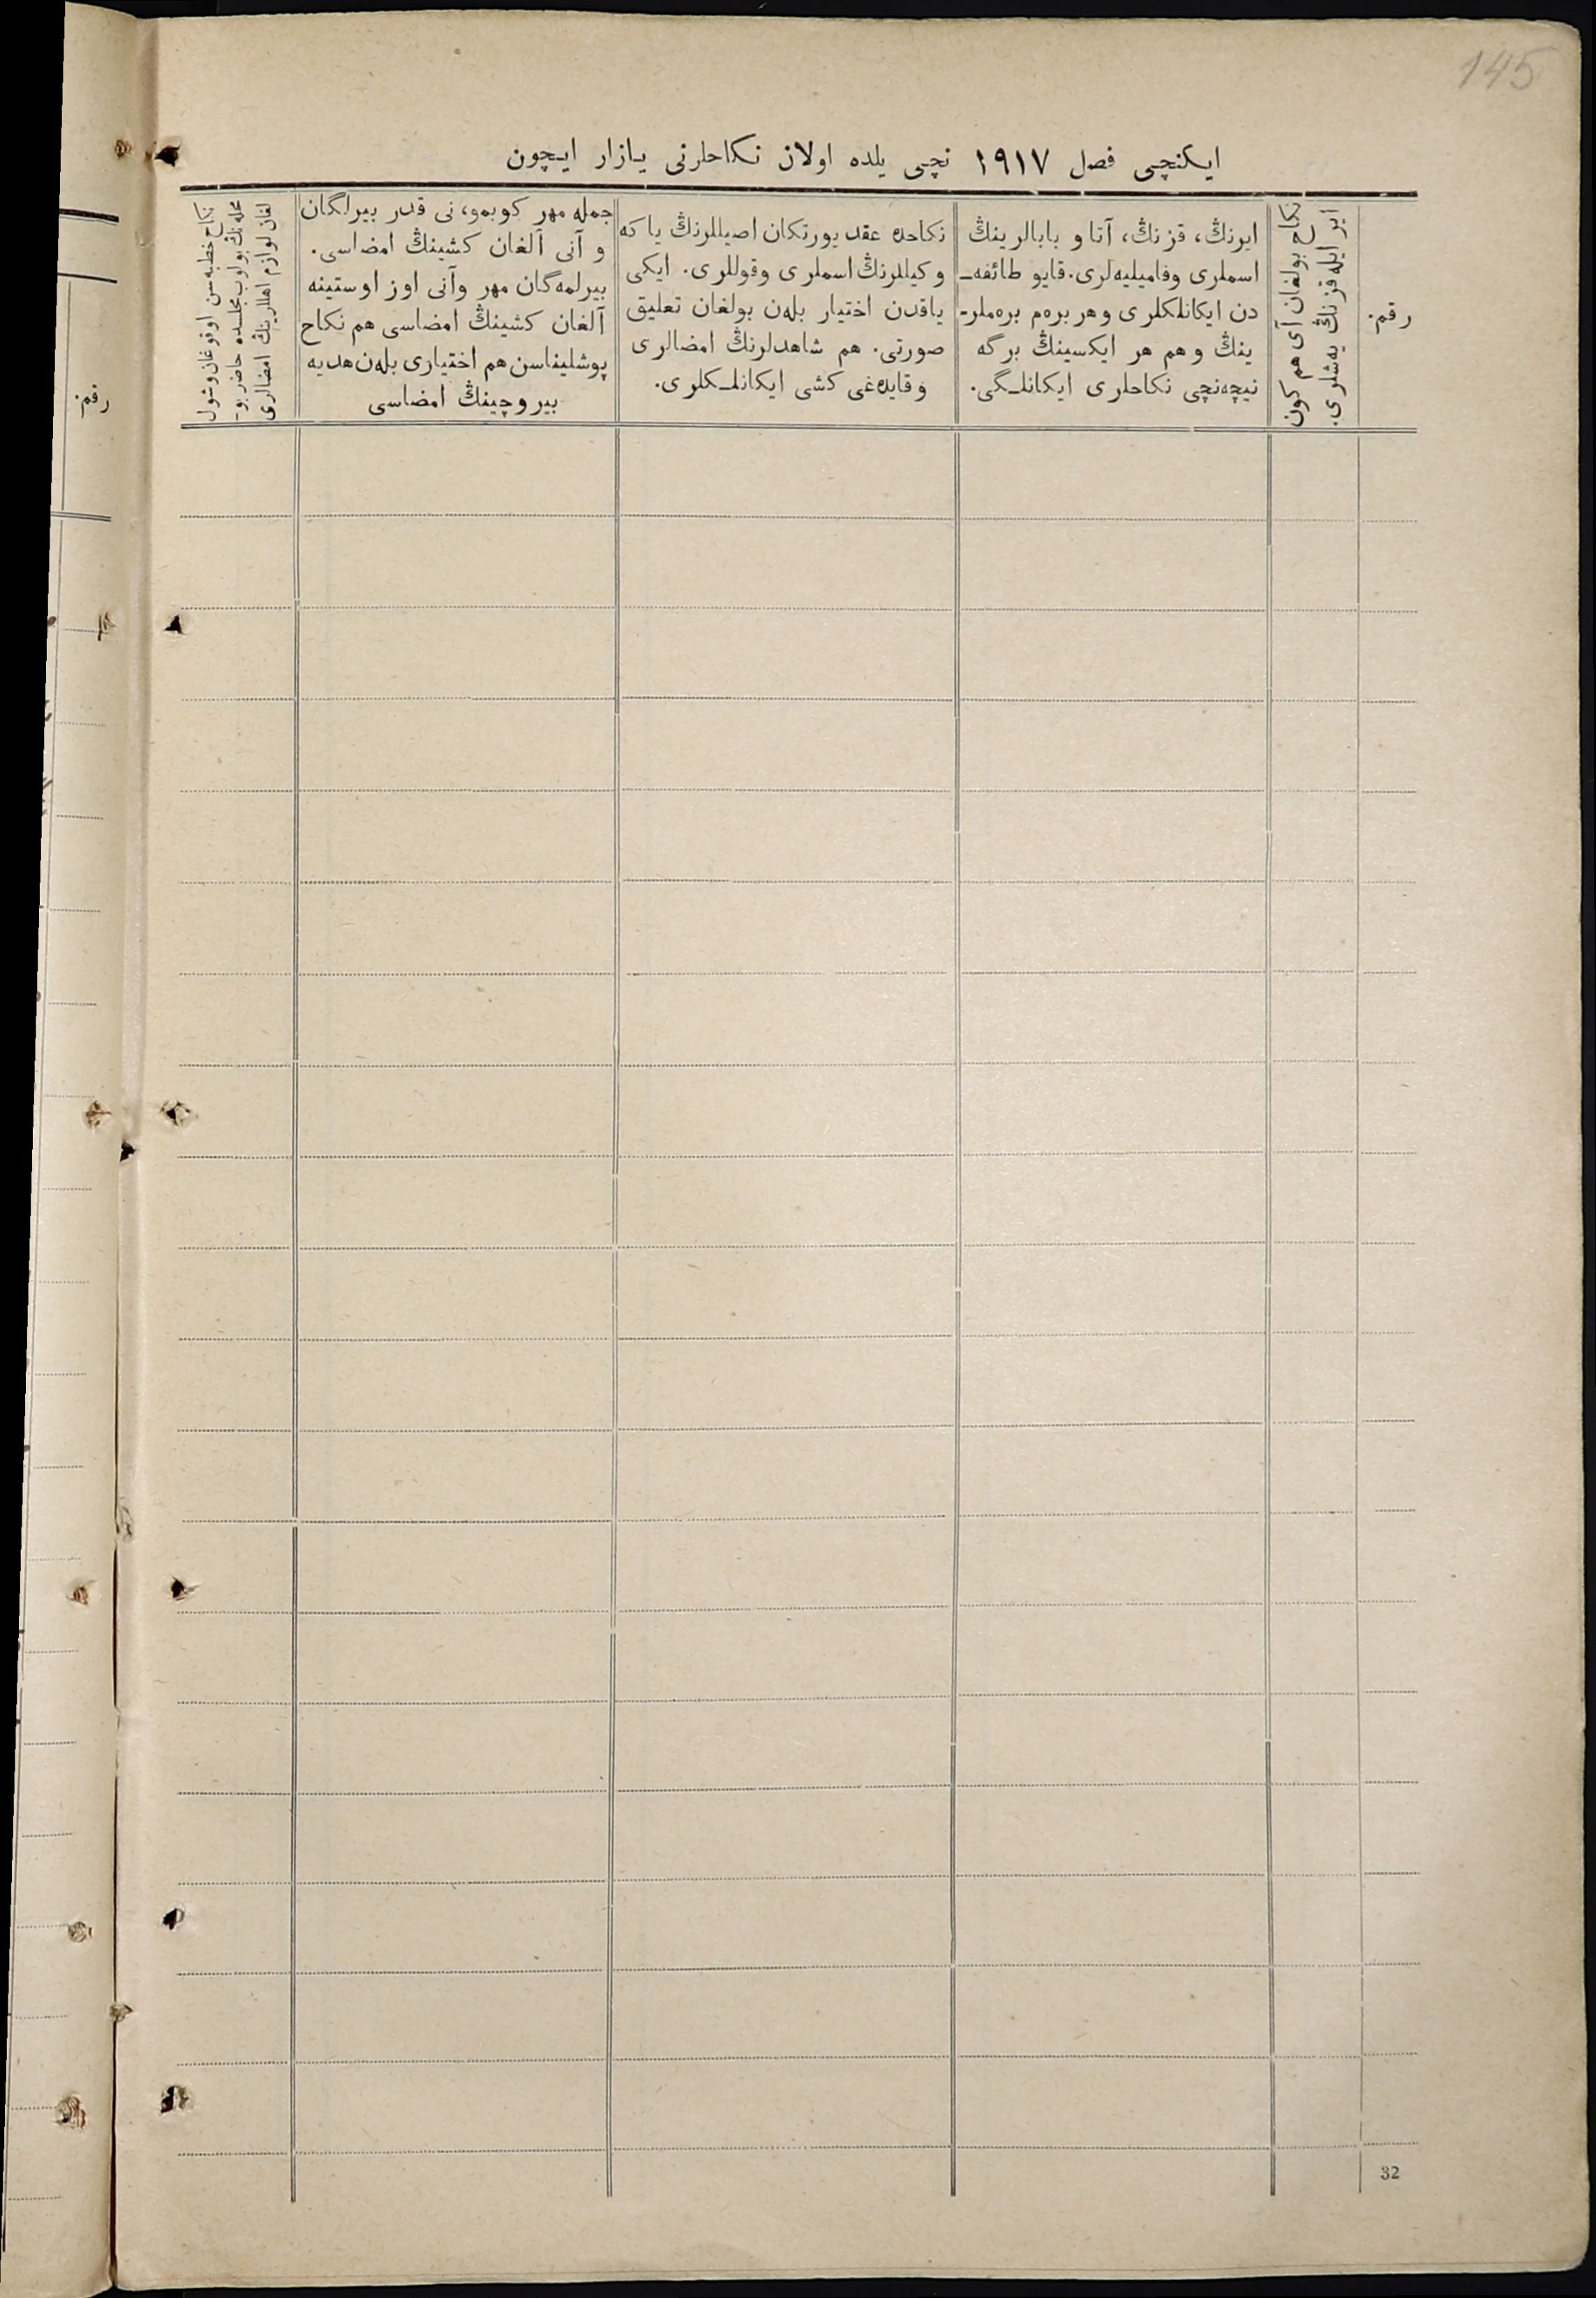 145
ایکنچی فصل ١٩١٧ نچی یلده اولان نکاحلرنی یازار ایچون
رقم.
نکاح بولغان آی هم کون
ایر ایله قزنڭ یه‌شلری.
ایرنڭ، قزنڭ، آتا و بابالرینڭ
اسملری وفامیلیه‌لری. قایو طائفه‌ـ
دن ایکانلکلری و هر بره‌م بره‌ملر-
ینڭ و هم هر ایکسینڭ برگه
نیچه‌نچی نکاحلری ایکانلـگی.
نکاحده عقد یورتکان اصیللرنڭ یا که
وکیللرنڭ اسملری وقوللری. ایکی
یاقدن اختیار بله‌ن بولغان تعلیق
صورتی. هم شاهدلرنڭ امضالری
و قایده‌غی کشی ایکانلـکلری.
جمله مهر کوبمو، نی قدر بیرلگان
و آنی آلغان کشینڭ امضاسی.
بیرلمه‌گان مهر وآنی اوز اوستینه
آلغان کشینڭ امضاسی هم نکاح
پوشلیناسن هم اختیاری بله‌ن هدیه
بیروچینڭ امضاسی
نکاح خطبه‌سن اوقوغان وشول
محله‌نڭ بولوب مجلسده حاضر بو-
لغان لوازم اهللرینڭ امضالری
رقم.
32